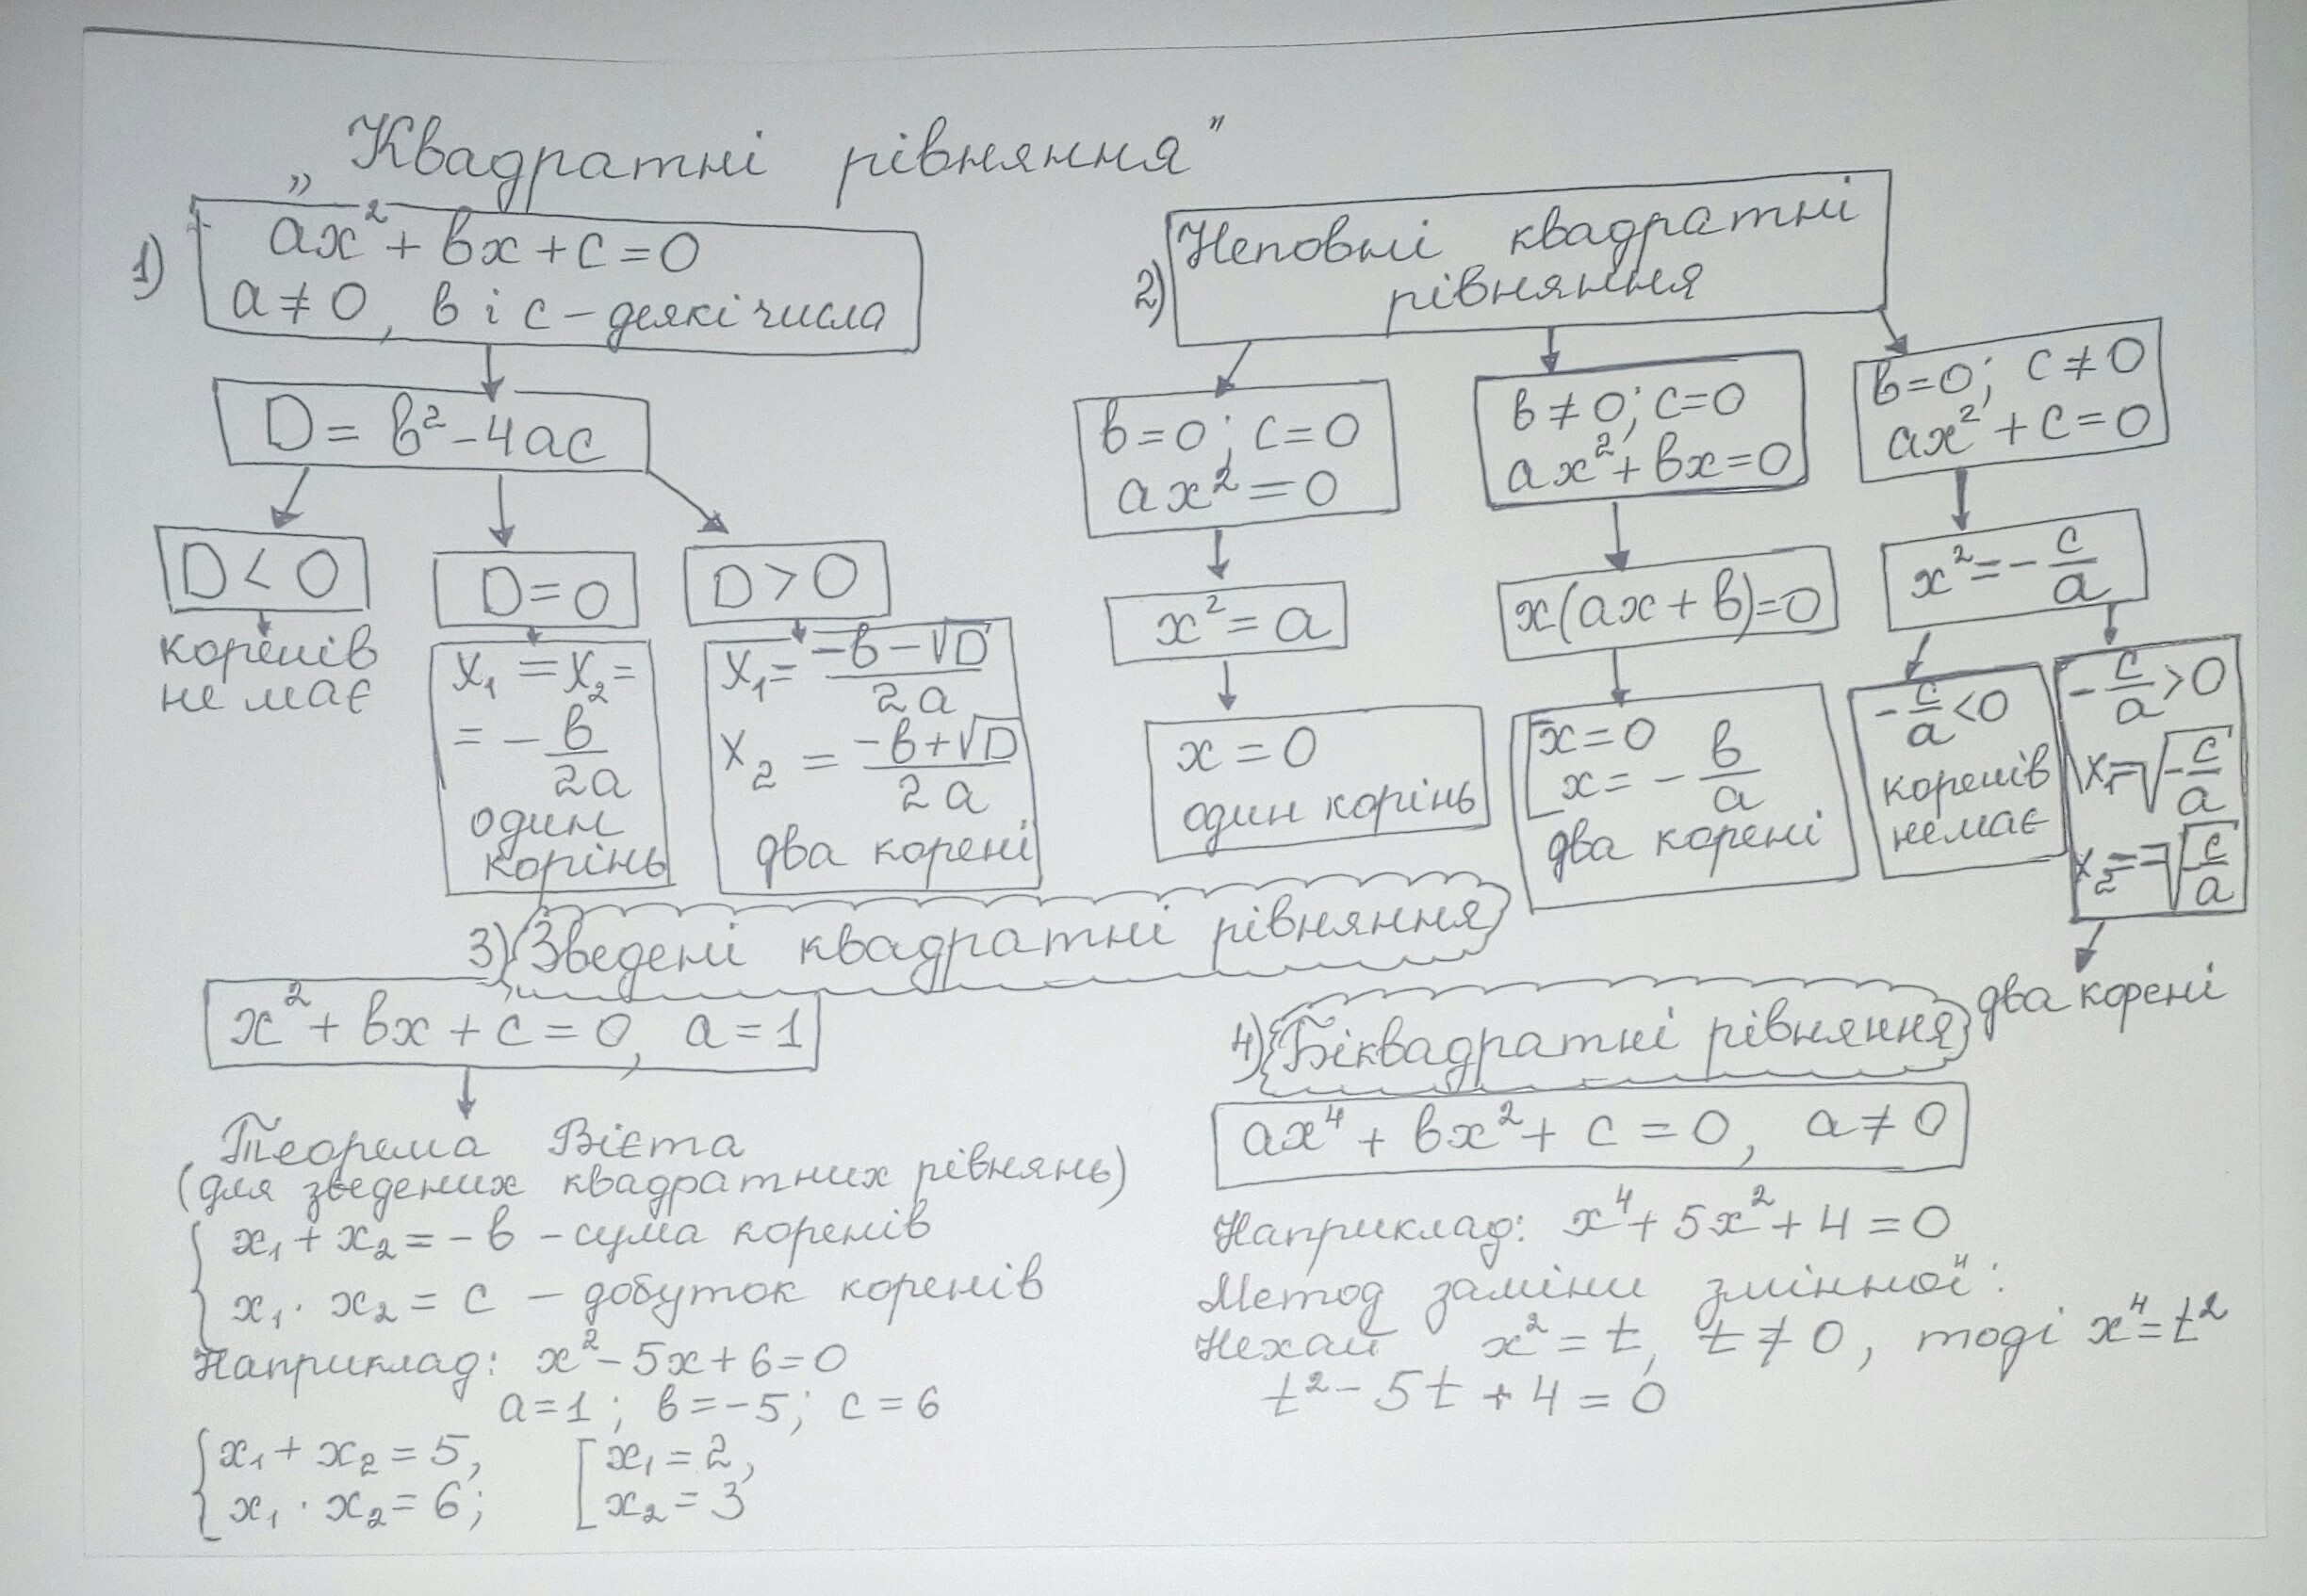 „Квадратні рівняння”
1) ax² + bx + c = 0
a ≠ 0, b і c – деякі числа
D = b² – 4ac
D < 0
коренів
немає
D = 0
x₁ = x₂ =
= – b/2a
один
корінь
D > 0
x₁ = (–b – √D)/2a
x₂ = (–b + √D)/2a
два корені
2) Неповні квадратні
рівняння
b = 0; c = 0
ax² = 0
x² = a
x = 0
один корінь
b ≠ 0; c = 0
ax² + bx = 0
x(ax + b) = 0
x = 0
x = – b/a
два корені
b = 0; c ≠ 0
ax² + c = 0
x² = – c/a
– c/a < 0
коренів
немає
– c/a > 0
x₁ = √(–c/a)
x₂ = –√(c/a)
два корені
3) Зведені квадратні рівняння
x² + bx + c = 0, a = 1
Теорема Вієта
(для зведених квадратних рівнянь)
{ x₁ + x₂ = – b – сума коренів
x₁ · x₂ = c – добуток коренів
Наприклад: x² – 5x + 6 = 0
a = 1; b = –5; c = 6
{ x₁ + x₂ = 5, [ x₁ = 2,
x₁ · x₂ = 6; x₂ = 3
4) Біквадратні рівняння
ax⁴ + bx² + c = 0, a ≠ 0
Наприклад: x⁴ + 5x² + 4 = 0
Метод заміни змінної":
Нехай x² = t, t ≠ 0, тоді x⁴ = t²
t² – 5t + 4 = 0